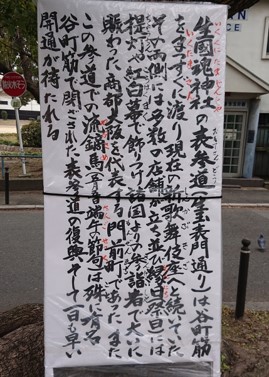 生國魂神社の表参道(生玉表門通り)は谷町筋
いくたまさん
おもてさんどう
をまっすぐに渡り現在の新歌舞伎座へと続いていた
その両側には多数の店舗が立ち並び縁日祭旦には
提灯や紅白幕で飾りつけ諸国よりの参詣者で大いに
賑わった、商都大阪を代表する門前町であった。また
この参道での流鏑馬(五月端午の節句)は殊に有名
谷町筋で閉ざされた表参道の復興そして一日も早い
開通が待たれる